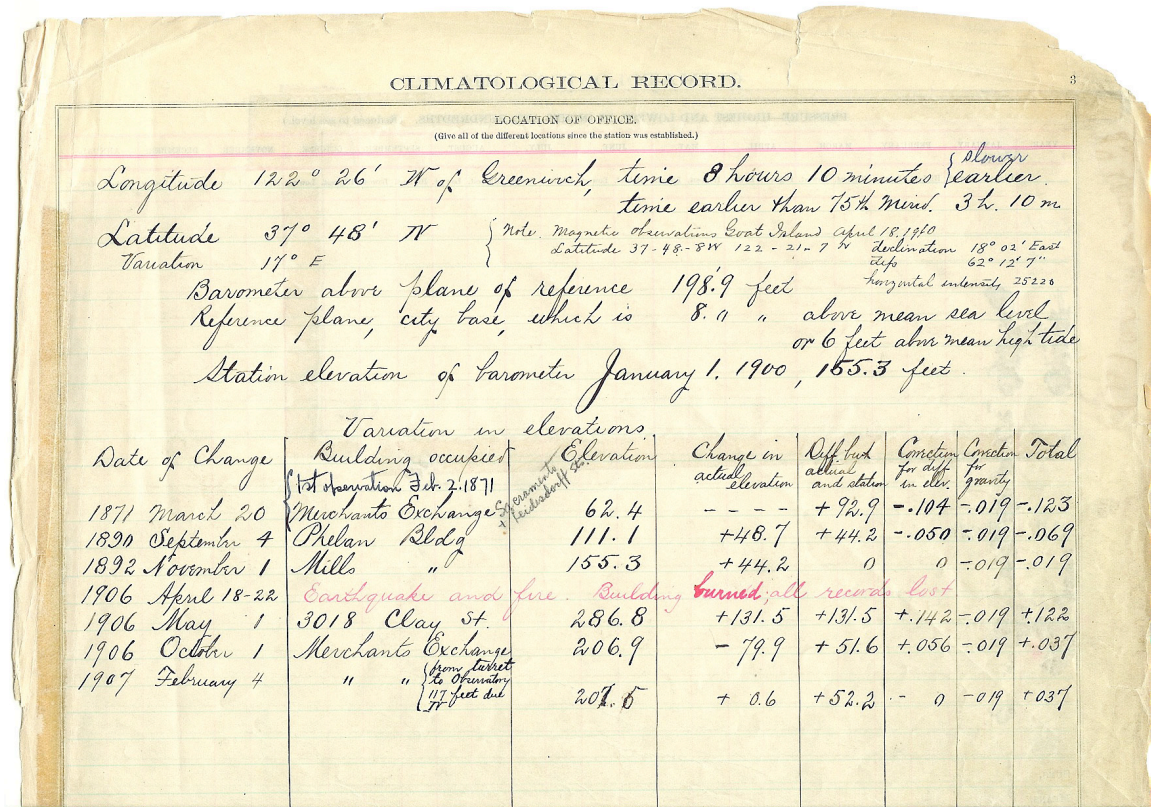 CLIMATOLOGICAL RECORD.
3
LOCATION OF OFFICE.
(Give all of the different locations since the station was established.)
Longitude 122° 26' W of Greenwich, time 8 hours 10 minutes { slower earlier.
time earlier than 75th Merid. 3 h. 10 m
Latitude 37° 48' N
{ Note. Magnetic observations Goat Island April 18, 1900
Latitude 37-48-8 N 122-21-7 W declination 18° 02' East
Variation 17° E
dip 62° 12' 7"
horizontal intensity 25220
Barometer above plane of reference 198.9 feet
Reference plane, city base, which is 8. " " above mean sea level
or 6 feet above mean high tide
Station elevation of barometer January 1. 1900, 155.3 feet.
Variation in elevations
Date of Change Building occupied Elevation Change in actual elevation Diff but actual and station Correction for diff in elev. Correction for gravity Total
{ 1st observation Feb. 2. 1871
+ Sacramento Leidesdorff Sts.
1871 March 20 Merchants Exchange 62.4 - - - - +92.9 -.104 -.019 -.123
1890 September 4 Phelan Bldg 111.1 +48.7 +44.2 -.050 -.019 -.069
1892 November 1 Mills " 155.3 +44.2 0 0 -.019 -.019
1906 April 18-22 Earthquake and fire. Building burned; all records lost
1906 May 1 3018 Clay St. 286.8 +131.5 +131.5 +.142 -.019 +.122
1906 October 1 Merchants Exchange 206.9 - 79.9 + 51.6 +.056 -.019 +.037
1907 February 4 " " { from turret to Observatory 117 feet due N 207.5 + 0.6 +52.2 - 0 -019 +037